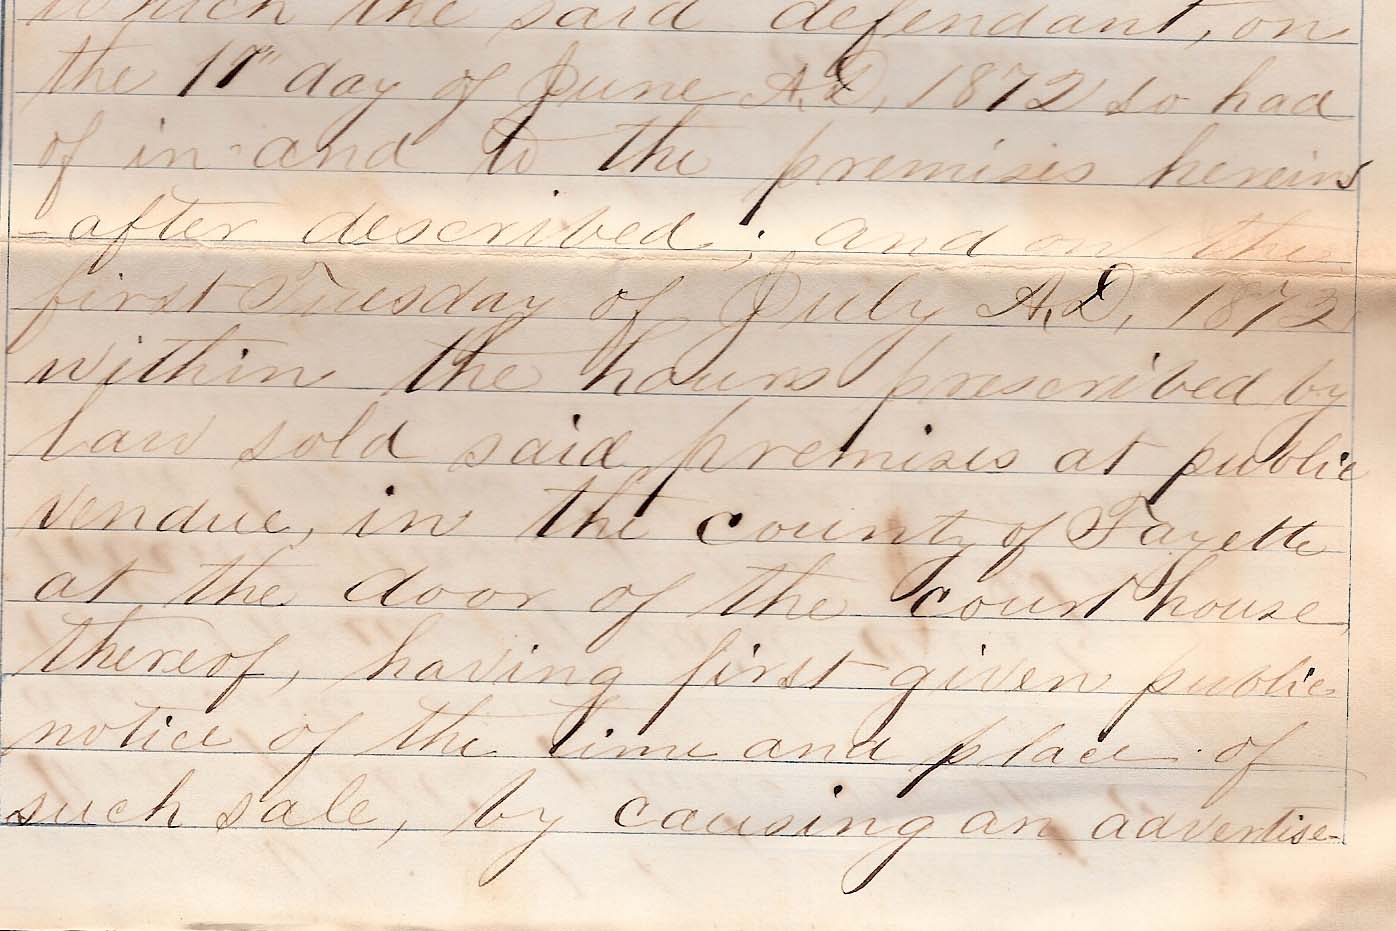 which the said defendant, on
the 1st day of June A.D. 1872 so had
of in and to the premises herein
-after described; and on the
first Tuesday of July A.D. 1872
within the hours prescribed by
law sold said premises at public
vendue, in the county of Fayette
at the door of the court house
thereof, having first given public
notice of the time and place of
such sale, by causing an advertise-